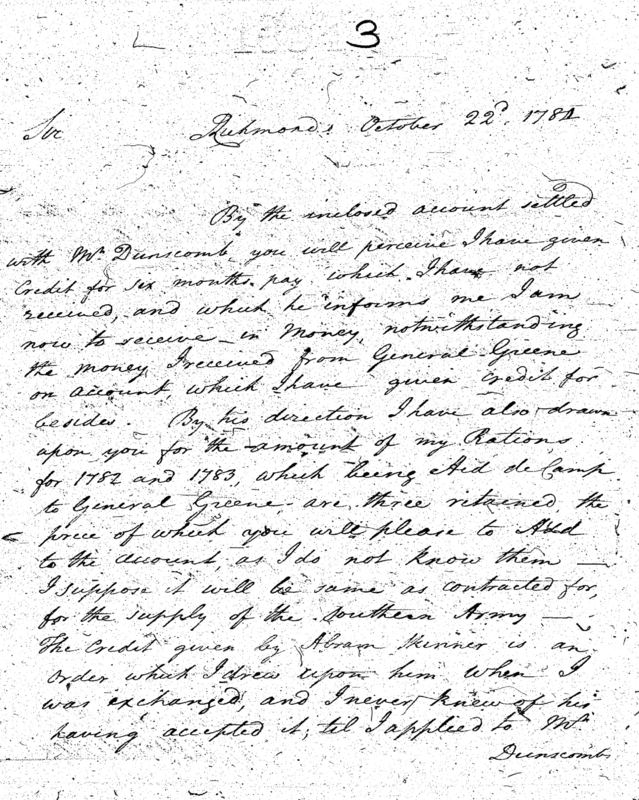 3
Sir Richmond October 22d. 1784
By the inclosed account settled
with Mr. Dunscomb, you will perceive I have given
Credit for six months pay which I have not
received, and which he informs me I am
now to receive in Money, notwithstanding
the money I received from General Greene
on account, which I have given credit for
besides. By his direction I have also drawn
upon you for the amount of my Rations
for 1782 and 1783, which being Aid de Camp
to General Greene are three retained the
price of which you will please to Add
to the account, as I do not know them —
I suppose it will be same as contracted for,
for the supply of the Southern Army —
The Credit given by Abram Skinner is an
Order which I drew upon him when I
was exchanged, and I never knew of his
having accepted it, til I applied to Mr.
Dunscomb